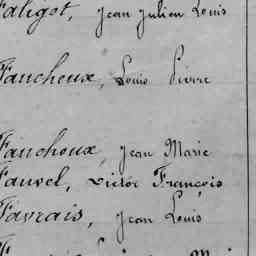 Faligot, Jean Julien Louis
Faucheux, Louis Pierre
Fauchoux, Jean Marie
Fauvel, Victor François
Favrais, Jean Louis